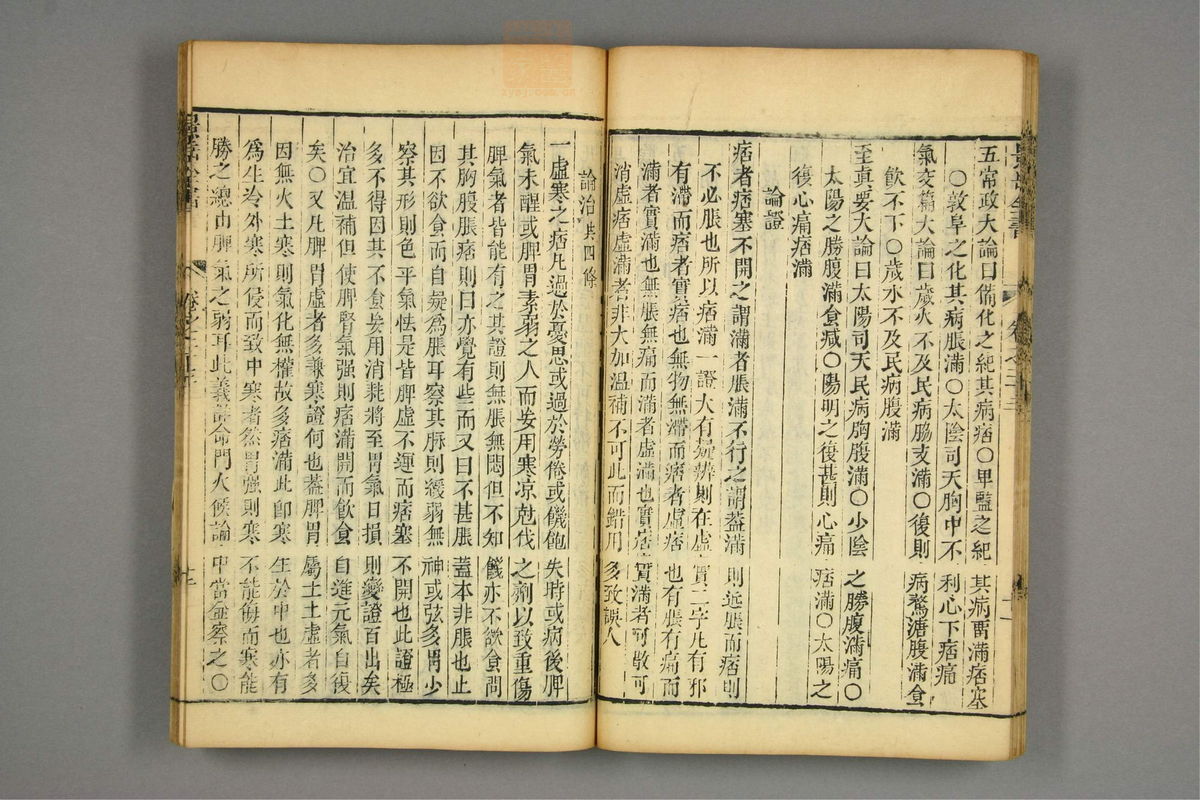 五常政大論曰備化之紀其病痞○卑監之紀其病畱滿痞塞
○敦阜之化其病脹滿○太陰司天胸中不利心下痞痛
氣交篇大論曰歲火不及民病脇支滿○復則病騖溏腹滿食
飲不下○歲水不及民病腹滿
至真要大論曰太陽司天民病胸腹滿○少陰之勝腹滿痛○
太陽之勝腹滿食減○陽明之復甚則心痛痞滿○太陽之
復心痛痞滿
論證
痞者痞塞不開之謂滿者脹滿不行之謂蓋滿則近脹而痞則
不必脹也所以痞滿一證大有疑辨則在虛實二字凡有邪
有滯而痞者實痞也無物無滯而痞者虛痞也有脹有痛而
滿者實滿也無脹無痛而滿者虛滿也實痞實滿者可散可
消虛痞虛滿者非大加温補不可此而錯用多致誤人
論治共四條
一虛寒之痞凡過於憂思或過於勞倦或饑飽失時或病後脾
氣未醒或脾胃素弱之人而妄用寒凉尅伐之劑以致重傷
脾氣者皆能有之其證則無脹無悶但不知饑亦不欲食問
其胸腹脹痞則曰亦覺有些而又曰不甚脹蓋本非脹也止
因不欲食而自疑爲脹耳察其脉則緩弱無神或弦多胃少
察其形則色平氣怯是皆脾虛不運而痞塞不開也此證極
多不得因其不食妄用消耗將至胃氣日損則變證百出矣
治宜温補但使脾腎氣强則痞滿開而飲食自進元氣自復
矣○又凡脾胃虛者多兼寒證何也蓋脾胃屬土土虛者多
因無火土寒則氣化無權故多痞滿此卽寒生於中也亦有
爲生冷外寒所侵而致中寒者然胃强則寒不能侮而寒能
勝之總由脾氣之弱耳此義詳命門火候論中當並察之○